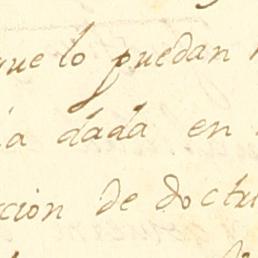 que lo puedan
a dada en
cion de doctri